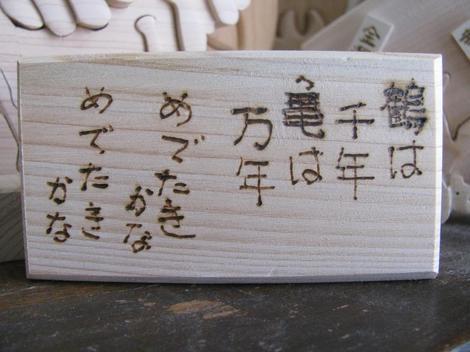 鶴は
千年
亀は
万年
めでたき
かな
めでたき
かな